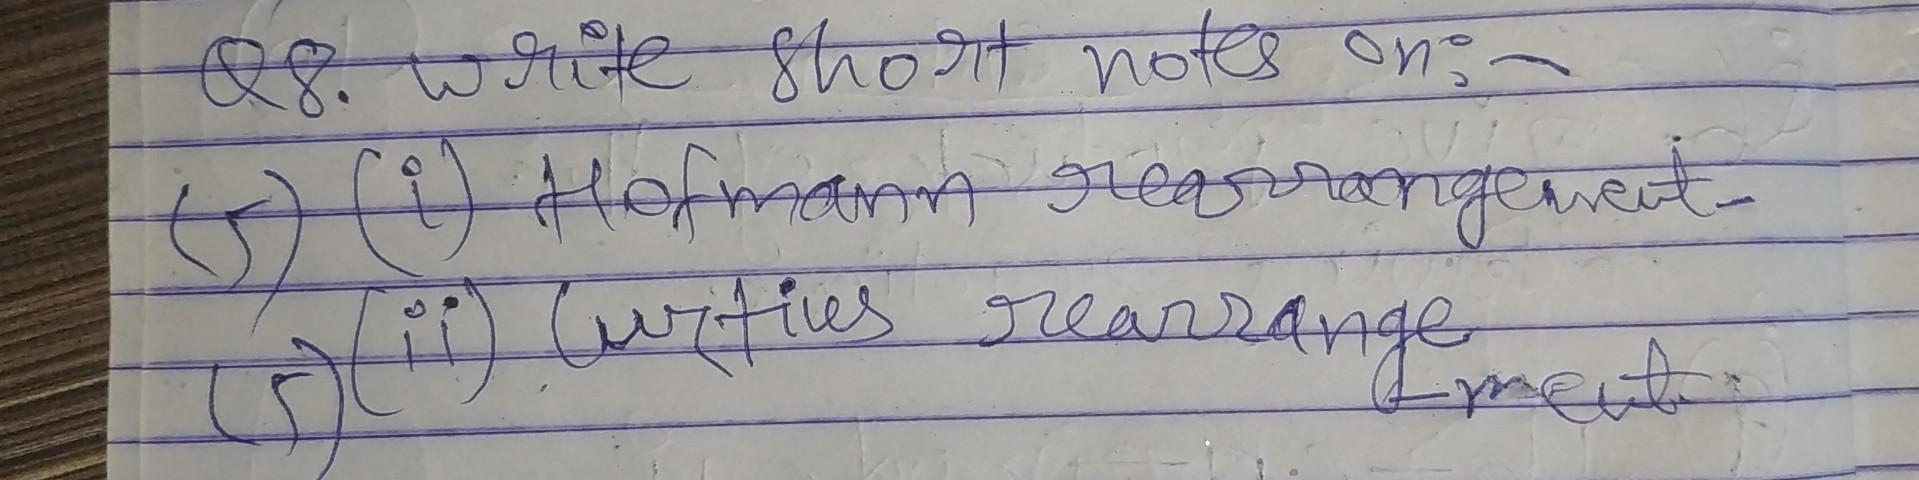 Q8. Write short notes on:-
(5) (i) Hofmann rearrangement-
(5) (ii) Curtius rearrange
-ment.